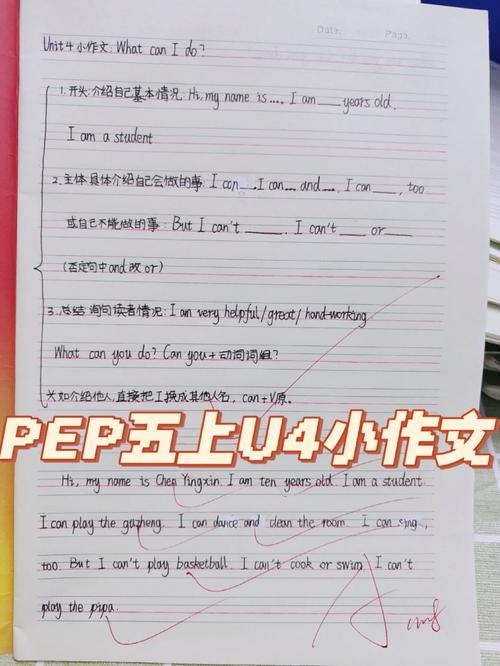 Date.    Page.
Unit 4 小作文: What can I do?
1. 开头: 介绍自己基本情况: Hi, my name is .... I am ___ years old.
I am a student
2. 主体: 具体介绍自己会做的事: I can ... I can ... and ... I can ___, too
或自己不能做的事: But I can't ___. I can't ___ or ___
(否定句中and改or)
3. 总结 询问读者情况: I am very helpful/great/hard-working
What can you do? Can you + 动词词组?
如介绍他人, 直接把I换成其他人名, can+V原.
PEP五上U4小作文
Hi, my name is Chen Yingxin. I am ten years old. I am a student.
I can play the guzheng. I can dance and clean the room. I can sing,
too. But I can't play basketball. I can't cook or swim. I can't
play the pipa.